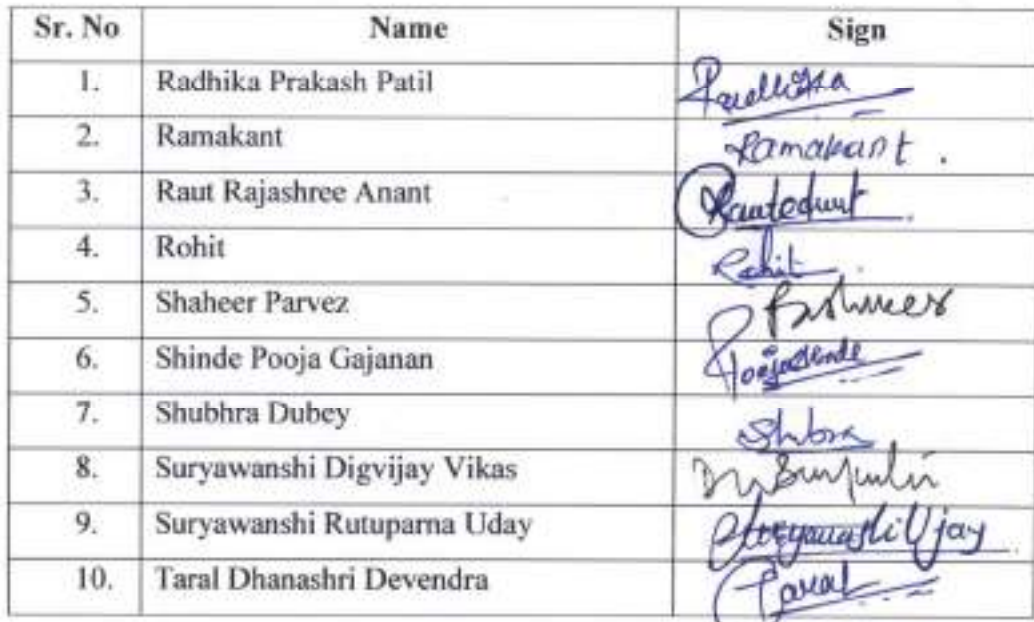 Sr. No Name Sign
1. Radhika Prakash Patil Radhika
2. Ramakant Ramakant .
3. Raut Rajashree Anant
4. Rohit Rohit .
5. Shaheer Parvez
6. Shinde Pooja Gajanan Poojashinde
7. Shubhra Dubey
8. Suryawanshi Digvijay Vikas
9. Suryawanshi Rutuparna Uday
10. Taral Dhanashri Devendra Taral